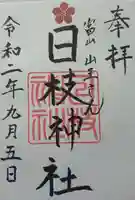 奉拝
富山 山王さん
日枝神社
令和二年九月五日